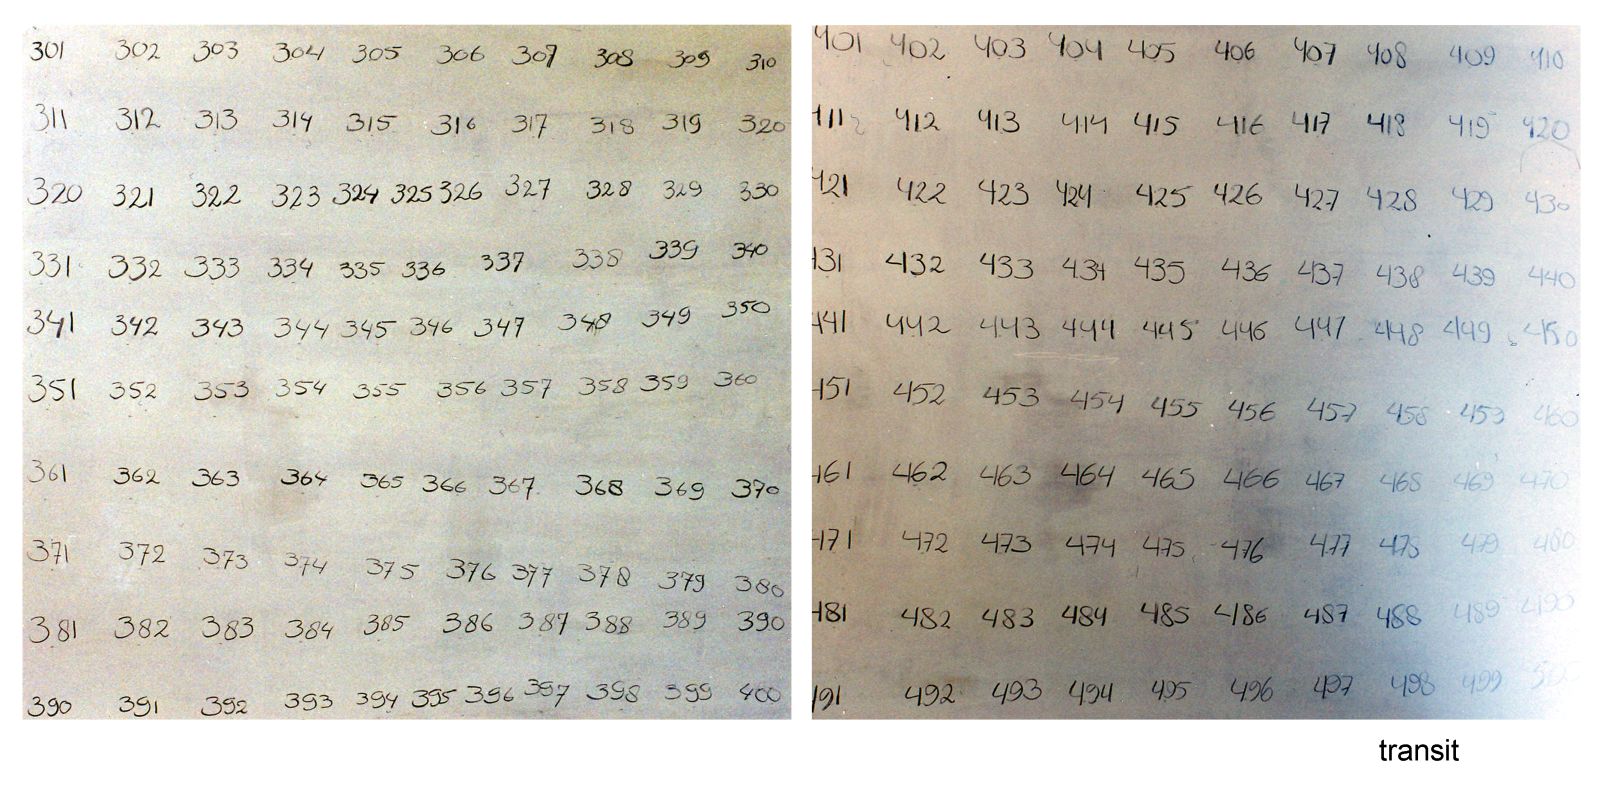 301 302 303 304 305 306 307 308 309 310
311 312 313 314 315 316 317 318 319 320
320 321 322 323 324 325 326 327 328 329 330
331 332 333 334 335 336 337 338 339 340
341 342 343 344 345 346 347 348 349 350
351 352 353 354 355 356 357 358 359 360
361 362 363 364 365 366 367 368 369 370
371 372 373 374 375 376 377 378 379 380
381 382 383 384 385 386 387 388 389 390
390 391 392 393 394 395 396 397 398 399 400
401 402 403 404 405 406 407 408 409 410
411 412 413 414 415 416 417 418 419 420
421 422 423 424 425 426 427 428 429 430
431 432 433 434 435 436 437 438 439 440
441 442 443 444 445 446 447 448 449 450
451 452 453 454 455 456 457 458 459 460
461 462 463 464 465 466 467 468 469 470
471 472 473 474 475 476 477 478 479 480
481 482 483 484 485 486 487 488 489 490
491 492 493 494 495 496 497 498 499
transit